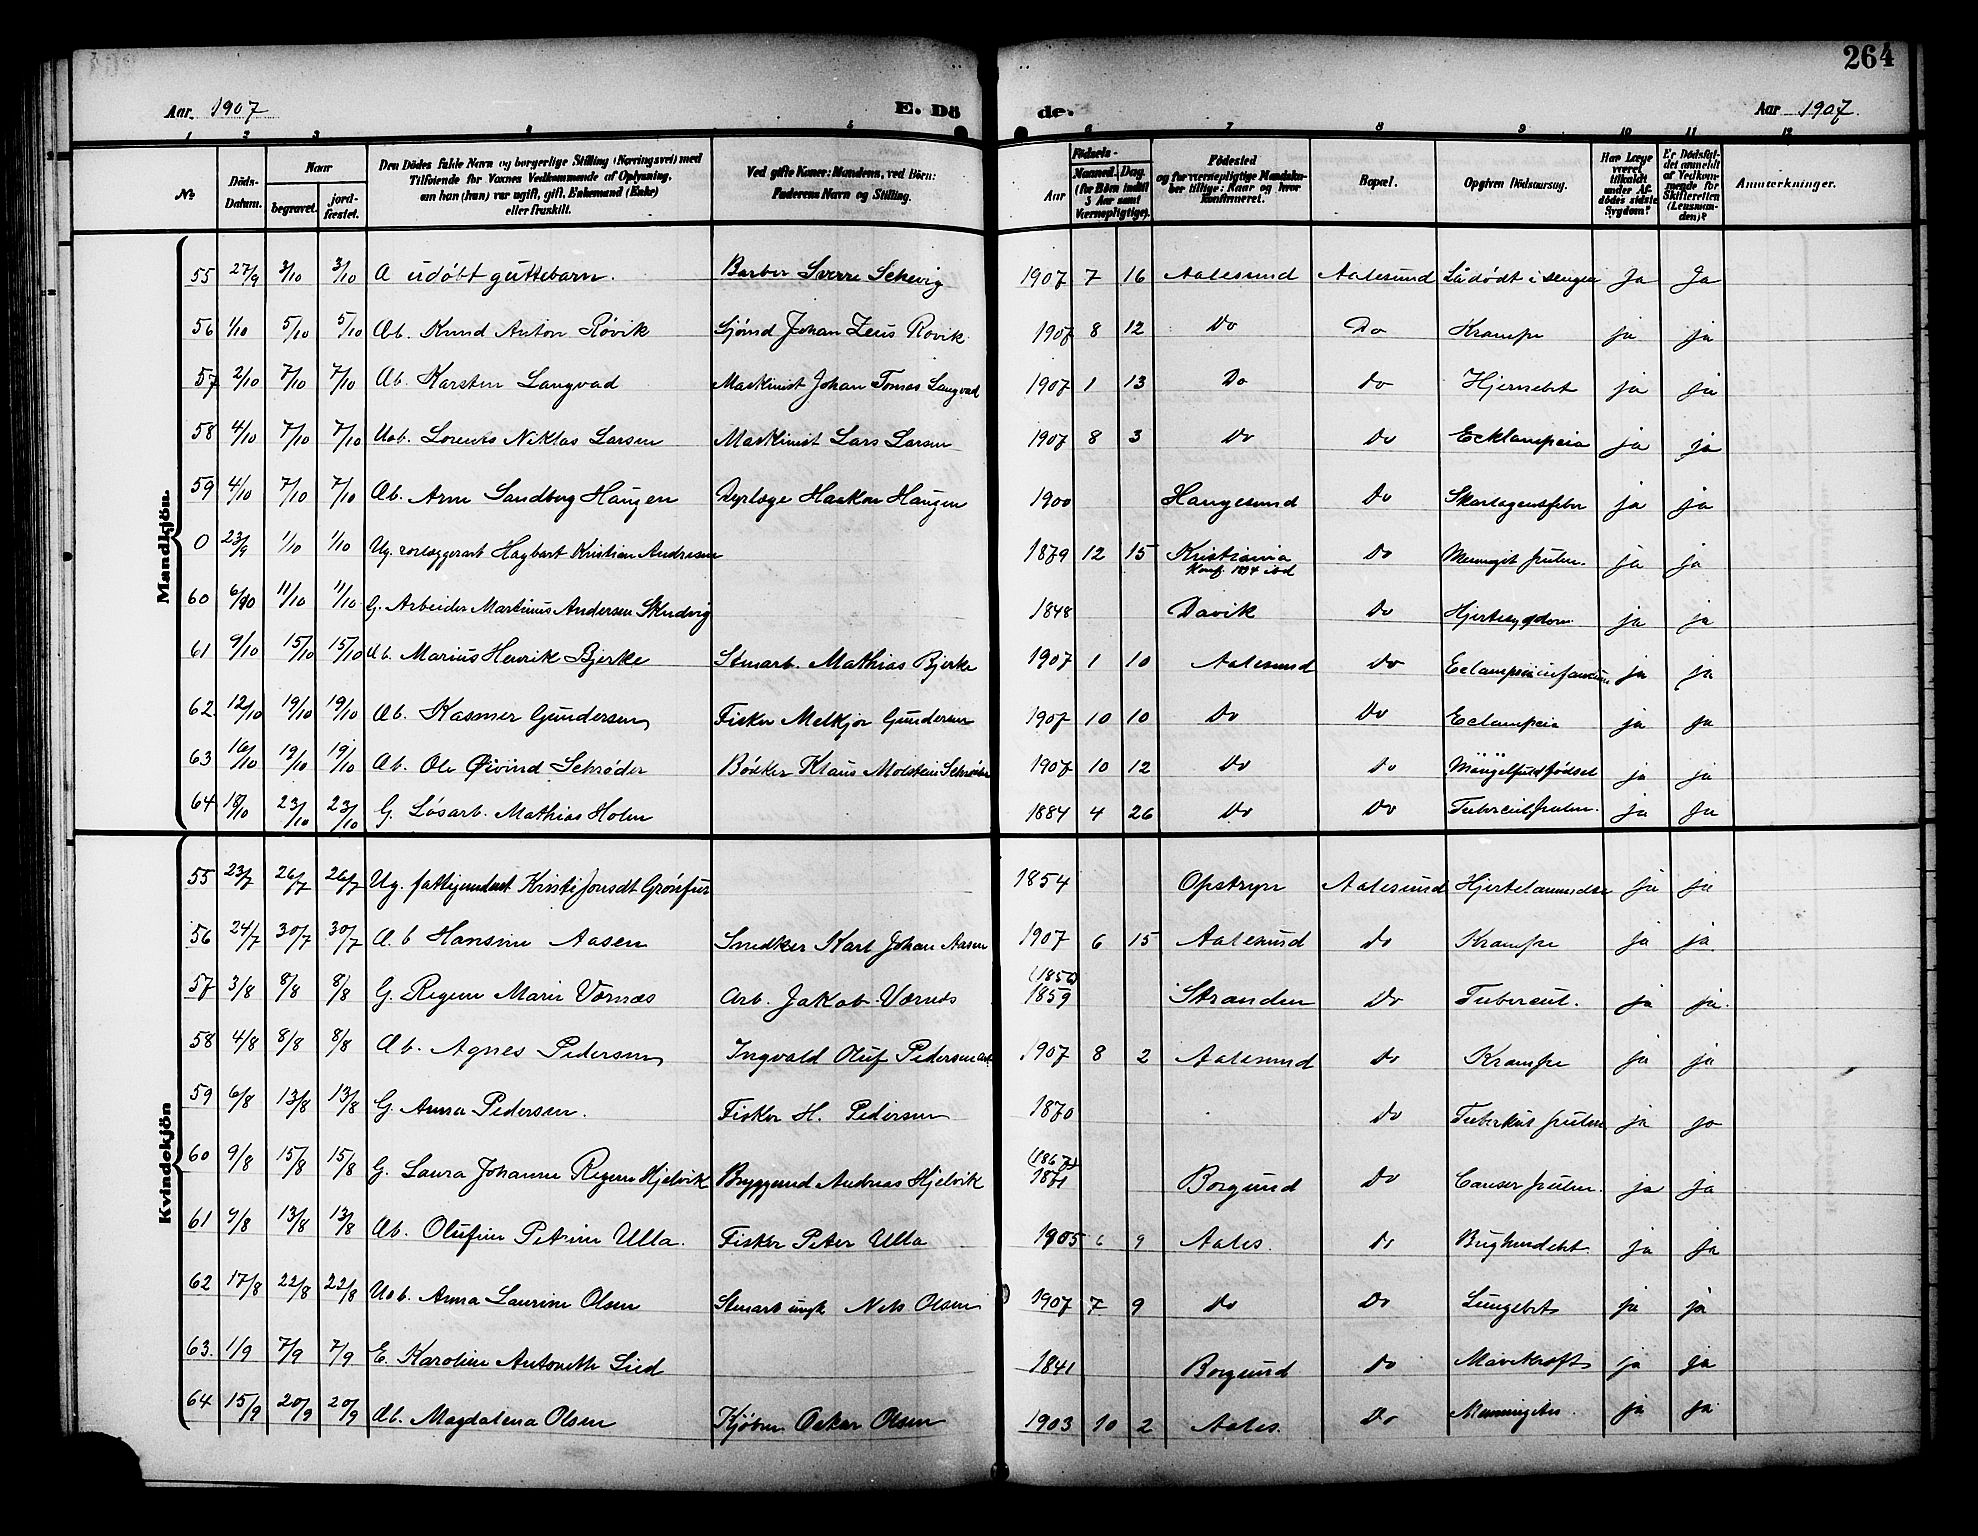 264
Aar 1907 E. Dö de. Aar 1907.
1 2 3 4 5 6 7 8 9 10 11 12
No. Döds-Datum. Naar begravet. jordfæstet. Den Dödes fulde Navn og borgerlige Stilling (Næringsvei) med Tilföiende for Voxnes Vedkommende af Oplysning, om han (hun) var ugift, gift, Enkemand (Enke) eller fraskilt. Ved gifte Koner: Mandens, ved Börn: Faderens Navn og Stilling. Födsels- Aar Maaned. Dag. (for Börn indtil 5 Aar samt Værnepligtige). Födested og for værnepligtige Mandskaber tillige: Naar og hvor konfirmeret. Bopæl. Opgiven Dödsaarsag. Har Læge været tilkaldt under Afdödes sidste Sygdom? Er Dödsfaldet anmeldt af Vedkommende for Skifteretten (Lensmanden)? Anmærkninger.
Mandkjön.
55 27/9 3/10 3/10 A udøbt guttebarn. Barber Sverre Schevig 1907 7 16 Aalesund Aalesund Lå dødt i sengen Ja Ja
56 1/10 5/10 5/10 Æb. Knud Anton Røvik Sjømd Johan Zeus Rovik 1907 8 12 Do Do Krampe ja ja
57 2/10 7/10 7/10 Æb. Karsten Langvad Maskinist Johan Tomas Langvad 1907 1 13 Do Do Hjernebet ja ja
58 4/10 7/10 7/10 Uæb. Lorents Niklas Larsen Maskinist Lars Larsen 1907 8 3 Do Do Ecklampsia ja ja
59 4/10 7/10 7/10 Æb. Arne Sandberg Haugen Dyrlæge Haakon Haugen 1900 Haugesund Do Skarlagensfeber ja ja
0 23/9 1/10 1/10 Ug. rørlæggerarb Hagbart Kristian Andresen 1879 12 15 Kristiania Konf. 1894 ibd Do Meningit ja ja
60 6/10 11/10 11/10 G. Arbeider Martinus Andersen Skudvig 1848 Davik Do Hjertesygdom ja ja
61 9/10 15/10 15/10 Æb. Marius Henrik Bjerke Stuarb. Mathias Bjerke 1907 1 10 Aalesund Do Eclampsia infantum ja ja
62. 12/10 19/10 19/10 Æb. Kasmer Gundersen Fisker Melkjor Gundersen 1907 10 10 Do Do Eclampsia ja ja
63 16/10 19/10 19/10 Æb. Ole Øivind Schrøder Bøkker Klaus Molstein Schrøder 1907 10 12 Do Do Mangelfuld fødsel ja ja
64 18/10 23/10 23/10 G. Løsarb. Mathias Holm 1884 4 26 Do Do Tubercul pulm. ja Ja
Kvindekjön
55 23/7 26/7 26/7 Ug. fattigunderst Kristi Jonsdt Grønfur 1854 Opstryn Aalesund Hjertelammelse ja ja
56 24/7 30/7 30/7 Æ. b Hansine Aasen Snedker Karl Johan Aasen 1907 6 15 Aalesund do Krampe ja ja
57 3/8 8/8 8/8 G. Regine Marie Værnæs Arb. Jakob Værnes (1856) 1859 Stranden Do Tubercul. ja ja.
58 4/8 8/8 8/8 Æb. Agnes Pedersen Ingvald Oluf Pedersen arb 1907 8 2 Aalesund do Krampe ja ja
59 6/8 13/8 13/8 G. Anna Pedersen. Fisker H. Pedersen 1870 do Tuberkul pulm ja ja
60 9/8 15/8 15/8 G. Laura Johanne Regine Hjelvik Bryggemd Andreas Hjelvik (1867) 1871 Borgund do Canser pulm. ja ja
61 9/8 13/8 13/8 Æb. Olufine Petrine Ulla. Fisker Peter Ulla 1905 6 9 Aales. do Bughendebet ja ja
62 17/8 22/8 22/8 Uæb. Anna Laurine Olsen Stuarb ungk Nels Olsen 1907 7 9 Do Do Lungebet. ja ja
63. 1/9 7/9 7/9 E. Karoline Antonette Lied 1841 Borgund do Mavekræft ja ja
64 15/9 20/9 20/9 Æb. Magdalena Olsen Kjøbm. Oskar Olsen 1903 10 2 Aales. Do Meningites ja ja